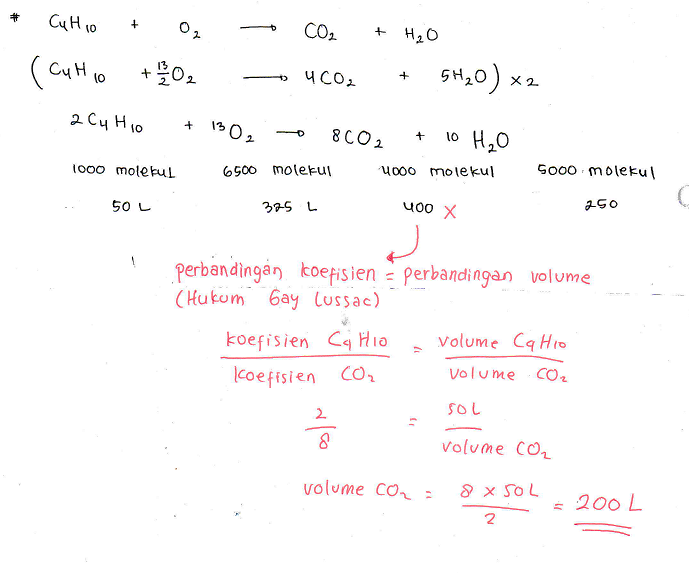 * C4H10 + O2 → CO2 + H2O
(C4H10 + 13/2 O2 → 4CO2 + 5H2O) x 2
2C4H10 + 13O2 → 8CO2 + 10 H2O
1000 molekul 6500 molekul 4000 molekul 5000 molekul
50 L 325 L 400 X 250
perbandingan koefisien = perbandingan volume
(Hukum Gay Lussac)
koefisien C4H10 / koefisien CO2 = volume C4H10 / volume CO2
2/8 = 50L / volume CO2
volume CO2 = 8 x 50L / 2 = 200 L